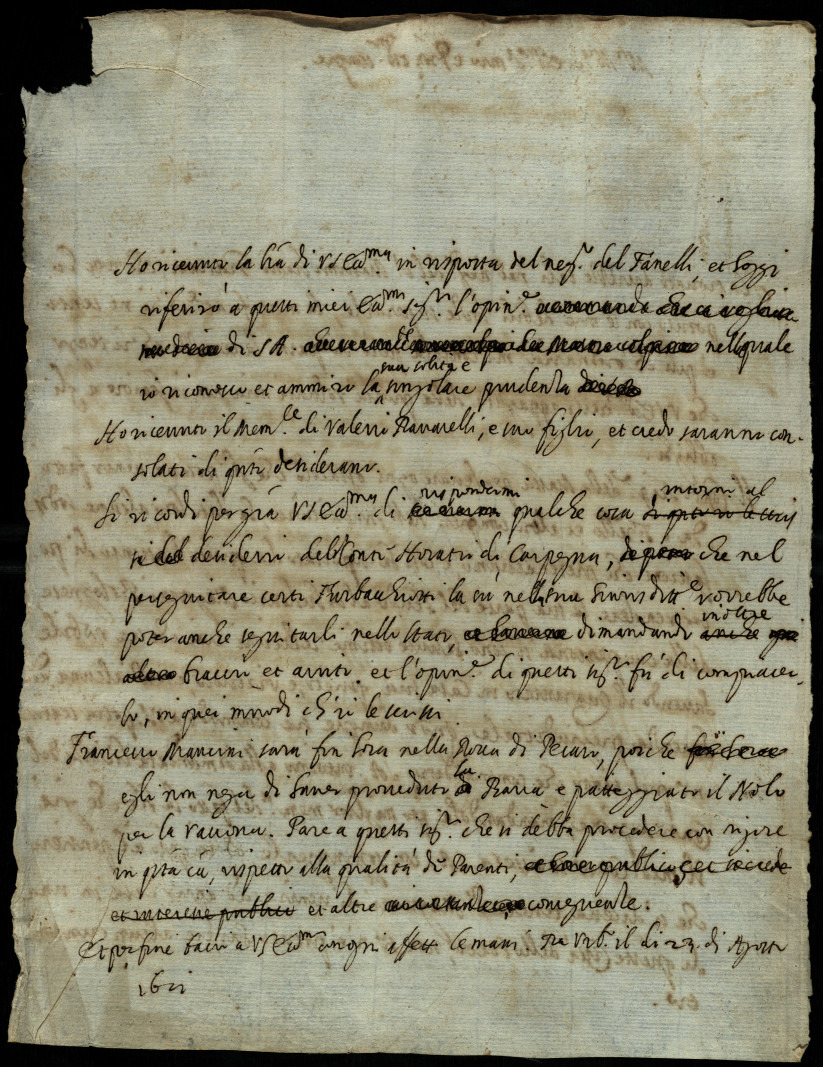 Ho ricevuto la l'ra di VS Ecc.ma in risposta del neg.o del Fanelli, et hoggi
riferirò a questi miei Ecc.mi sig.ri l'opin.e
di SA. nella quale
sua solita e
io riconosco et ammiro la singolare prudenza
Ho ricevuto il Mem.le di Valerio Ravarelli, e suo figlio, et credo saranno con-
solati di q'nto desiderano.
Si ricordi per gra' VS Ecc.ma di rispondermi qualche cosa intorno al
desiderio del Conte Horatio di Carpegna, che nel
perseguitare certi la su nella sua Giurisditt.e vorrebbe
poter anche seguitarli nello stato, dimandando inoltre
braccio et aiuto. et l'opin.e di questi sig.ri fù di compiacer-
lo, in quei modi ch'io le scrissi.
Francesco Mancini sarà fin hora nella Rocca di Pesaro, poiche
egli non nega di haver proveduto la Barca e patteggiato il Nolo
per la. Pare a questi sig.ri che si debba procedere con rigore
in q'sta ca', rispetto alla qualità de Parenti,
et interesse publico et altre conseguente.
Et per fine bacio a VS Ecc.ma con ogni affetto le mani. Da Urb.o il di 23 di Agosto
1621